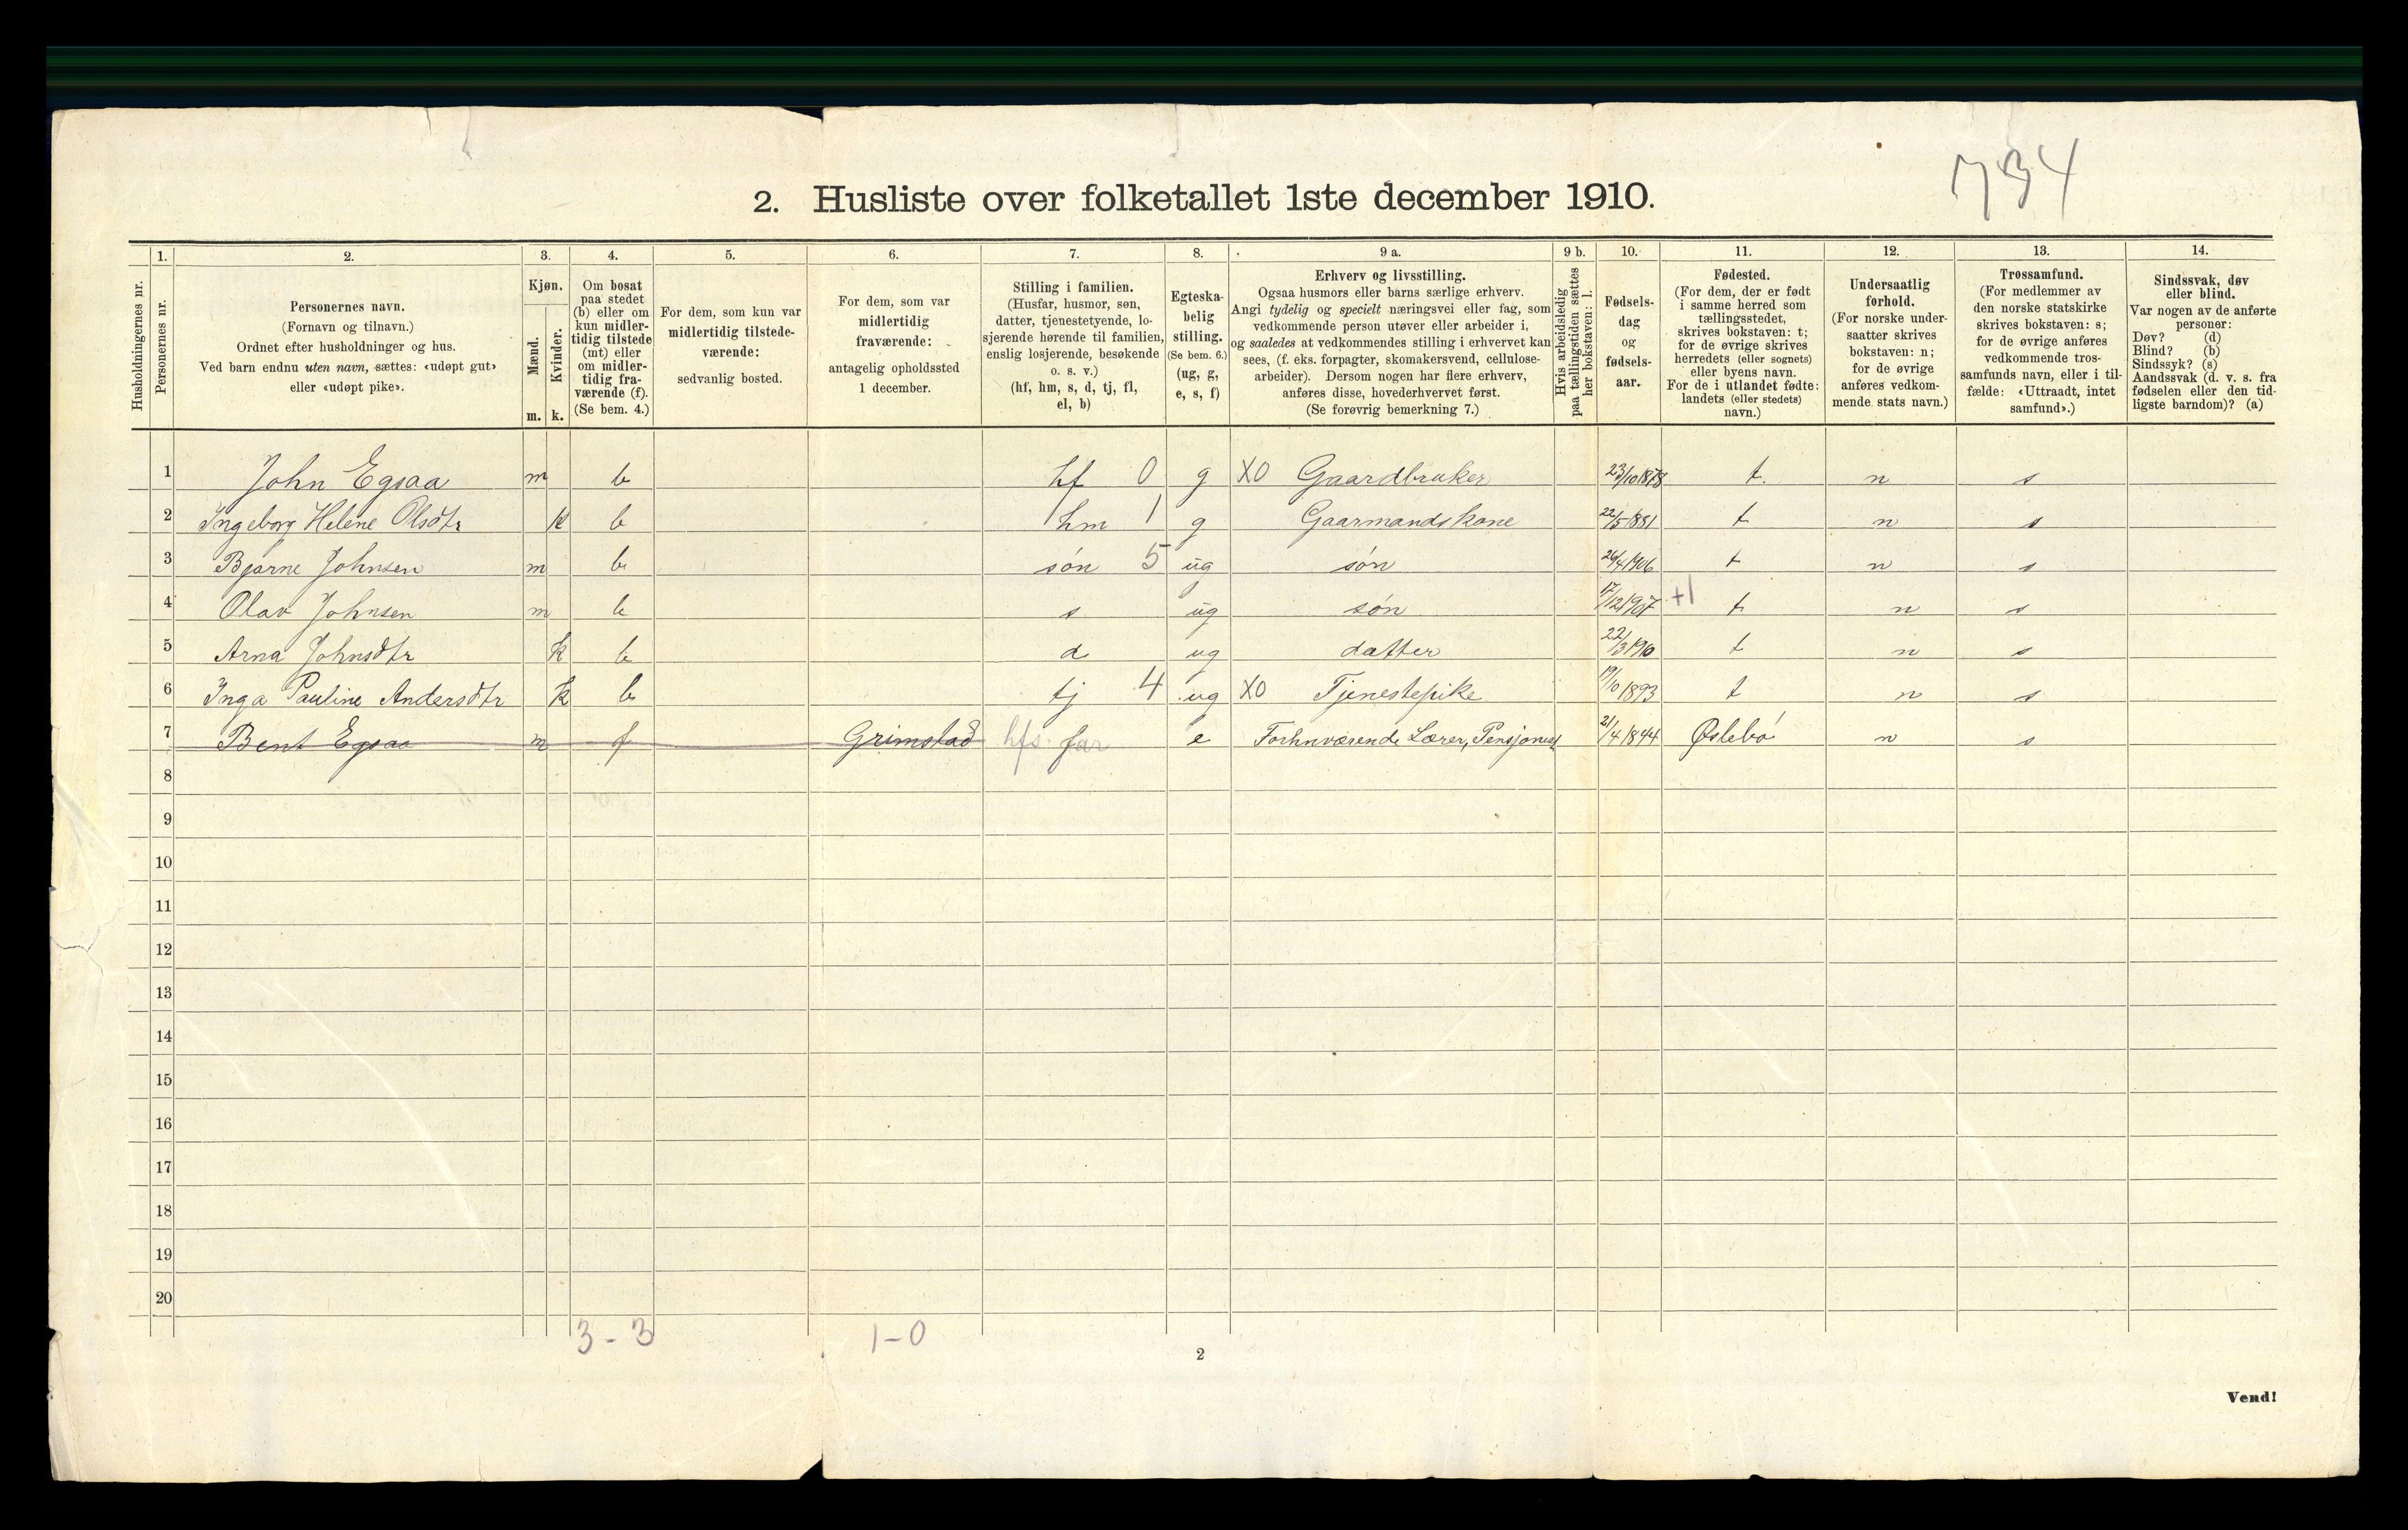 734
2. Husliste over folketallet 1ste december 1910.
Husholdningernes nr.
1.
Personernes nr.
2.
Personernes navn.
(Fornavn og tilnavn.)
Ordnet efter husholdninger og hus.
Ved barn endnu uten navn, sættes: «udøpt gut»
eller «udøpt pike».
3.
Kjøn.
Mænd.
Kvinder.
m. k.
4.
Om bosat
paa stedet
(b) eller om
kun midler-
tidig tilstede
(mt) eller
om midler-
tidig fra-
værende (f).
(Se bem. 4.)
5.
For dem, som kun var
midlertidig tilstede-
værende:
sedvanlig bosted.
6.
For dem, som var
midlertidig
fraværende:
antagelig opholdssted
1 december.
7.
Stilling i familien.
(Husfar, husmor, søn,
datter, tjenestetyende, lo-
sjerende hørende til familien,
enslig losjerende, besøkende
o. s. v.)
(hf, hm, s, d, tj, fl,
el, b)
8.
Egteska-
belig
stilling.
(Se bem. 6.)
(ug, g,
e, s, f)
9 a.
Erhverv og livsstilling.
Ogsaa husmors eller barns særlige erhverv.
Angi tydelig og specielt næringsvei eller fag, som
vedkommende person utøver eller arbeider i,
og saaledes at vedkommendes stilling i erhvervet kan
sees, (f. eks. forpagter, skomakersvend, cellulose-
arbeider). Dersom nogen har flere erhverv,
anføres disse, hovederhvervet først.
(Se forøvrig bemerkning 7.)
9 b.
Hvis arbeidsledig
paa tællingstiden sættes
her bokstaven: l.
10.
Fødsels-
dag
og
fødsels-
aar.
11.
Fødested.
(For dem, der er født
i samme herred som
tællingsstedet,
skrives bokstaven: t;
for de øvrige skrives
herredets (eller sognets)
eller byens navn.
For de i utlandet fødte:
landets (eller stedets)
navn.)
12.
Undersaatlig
forhold.
(For norske under-
saatter skrives
bokstaven: n;
for de øvrige
anføres vedkom-
mende stats navn.)
13.
Trossamfund.
(For medlemmer av
den norske statskirke
skrives bokstaven: s;
for de øvrige anføres
vedkommende tros-
samfunds navn, eller i til-
fælde: «Uttraadt, intet
samfund».)
14.
Sindssvak, døv
eller blind.
Var nogen av de anførte
personer:
Døv? (d)
Blind? (b)
Sindssyk? (s)
Aandssvak (d. v. s. fra
fødselen eller den tid-
ligste barndom)? (a)
1 John Egsaa m b hf 0 g X0 Gaardbruker 23/10 1878 t. n s
2 Ingeborg Helene Olsdtr k b hm 1 g Gaarmandskone 22/5 1881 t n s
3 Bjarne Johnsen m b søn 5 ug søn 26/4 1906 t n s
4 Olav Johnsen m b s ug søn 17/12 1907 +1 t n s
5 Arna Johnsdtr k b d ug datter 22/3 1910 t n s
6 Inga Pauline Andersdtr k b tj 4 ug X0 Tjenestepike 19/10 1893 t n s
7 Bent Egsaa m f Grimstad hfs. far e Forhnværende Lærer, Pensjonist 21/4 1844 Øslebø n s
8
9
10
11
12
13
14
15
16
17
18
19
20
3 - 3 1 - 0
2
Vend!